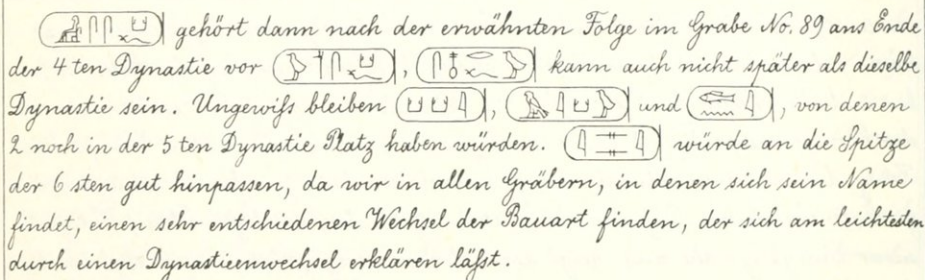 gehört dann nach der erwähnten Folge im Grabe No. 89 ans Ende
der 4 ten Dynastie vor , kann auch nicht später als dieselbe
Dynastie sein. Ungewiſs bleiben , und , von denen
2 noch in der 5 ten Dynastie Platz haben würden. würde an die Spitze
der 6 sten gut hinpassen, da wir in allen Gräbern, in denen sich sein Name
findet, einen sehr entschiedenen Wechsel der Bauart finden, der sich am leichtesten
durch einen Dynastieenwechsel erklären läſst.